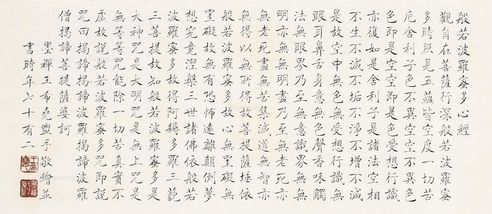 般若波羅蜜多心經
觀自在菩薩行深般若波羅蜜
多時照見五蘊皆空度一切苦
厄舍利子色不異空空不異色
色即是空空即是色受想行識
亦復如是舍利子是諸法空相
不生不滅不垢不淨不增不減
是故空中無色無受想行識無
眼耳鼻舌身意無色聲香味觸
法無眼界乃至無意識界無無
明亦無無明盡乃至無老死亦
無老死盡無苦集滅道無智亦
無得以無所得故菩提薩埵依
般若波羅蜜多故心無罣礙無
罣礙故無有恐怖遠離顛倒夢
想究竟涅槃三世諸佛依般若
波羅蜜多故得阿耨多羅三藐
三菩提故知般若波羅蜜多是
大神咒是大明咒是無上咒是
無等等咒能除一切苦真實不
虛故說般若波羅蜜多咒即說
咒曰揭諦揭諦波羅揭諦波羅
僧揭諦菩提薩婆訶
墨禪王希堯盥手敬繪並
書時年七十有二